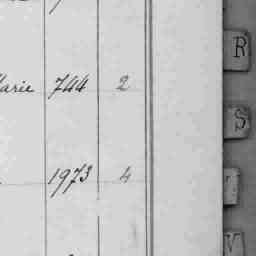 arie 744 2
R
S
1973 4
V